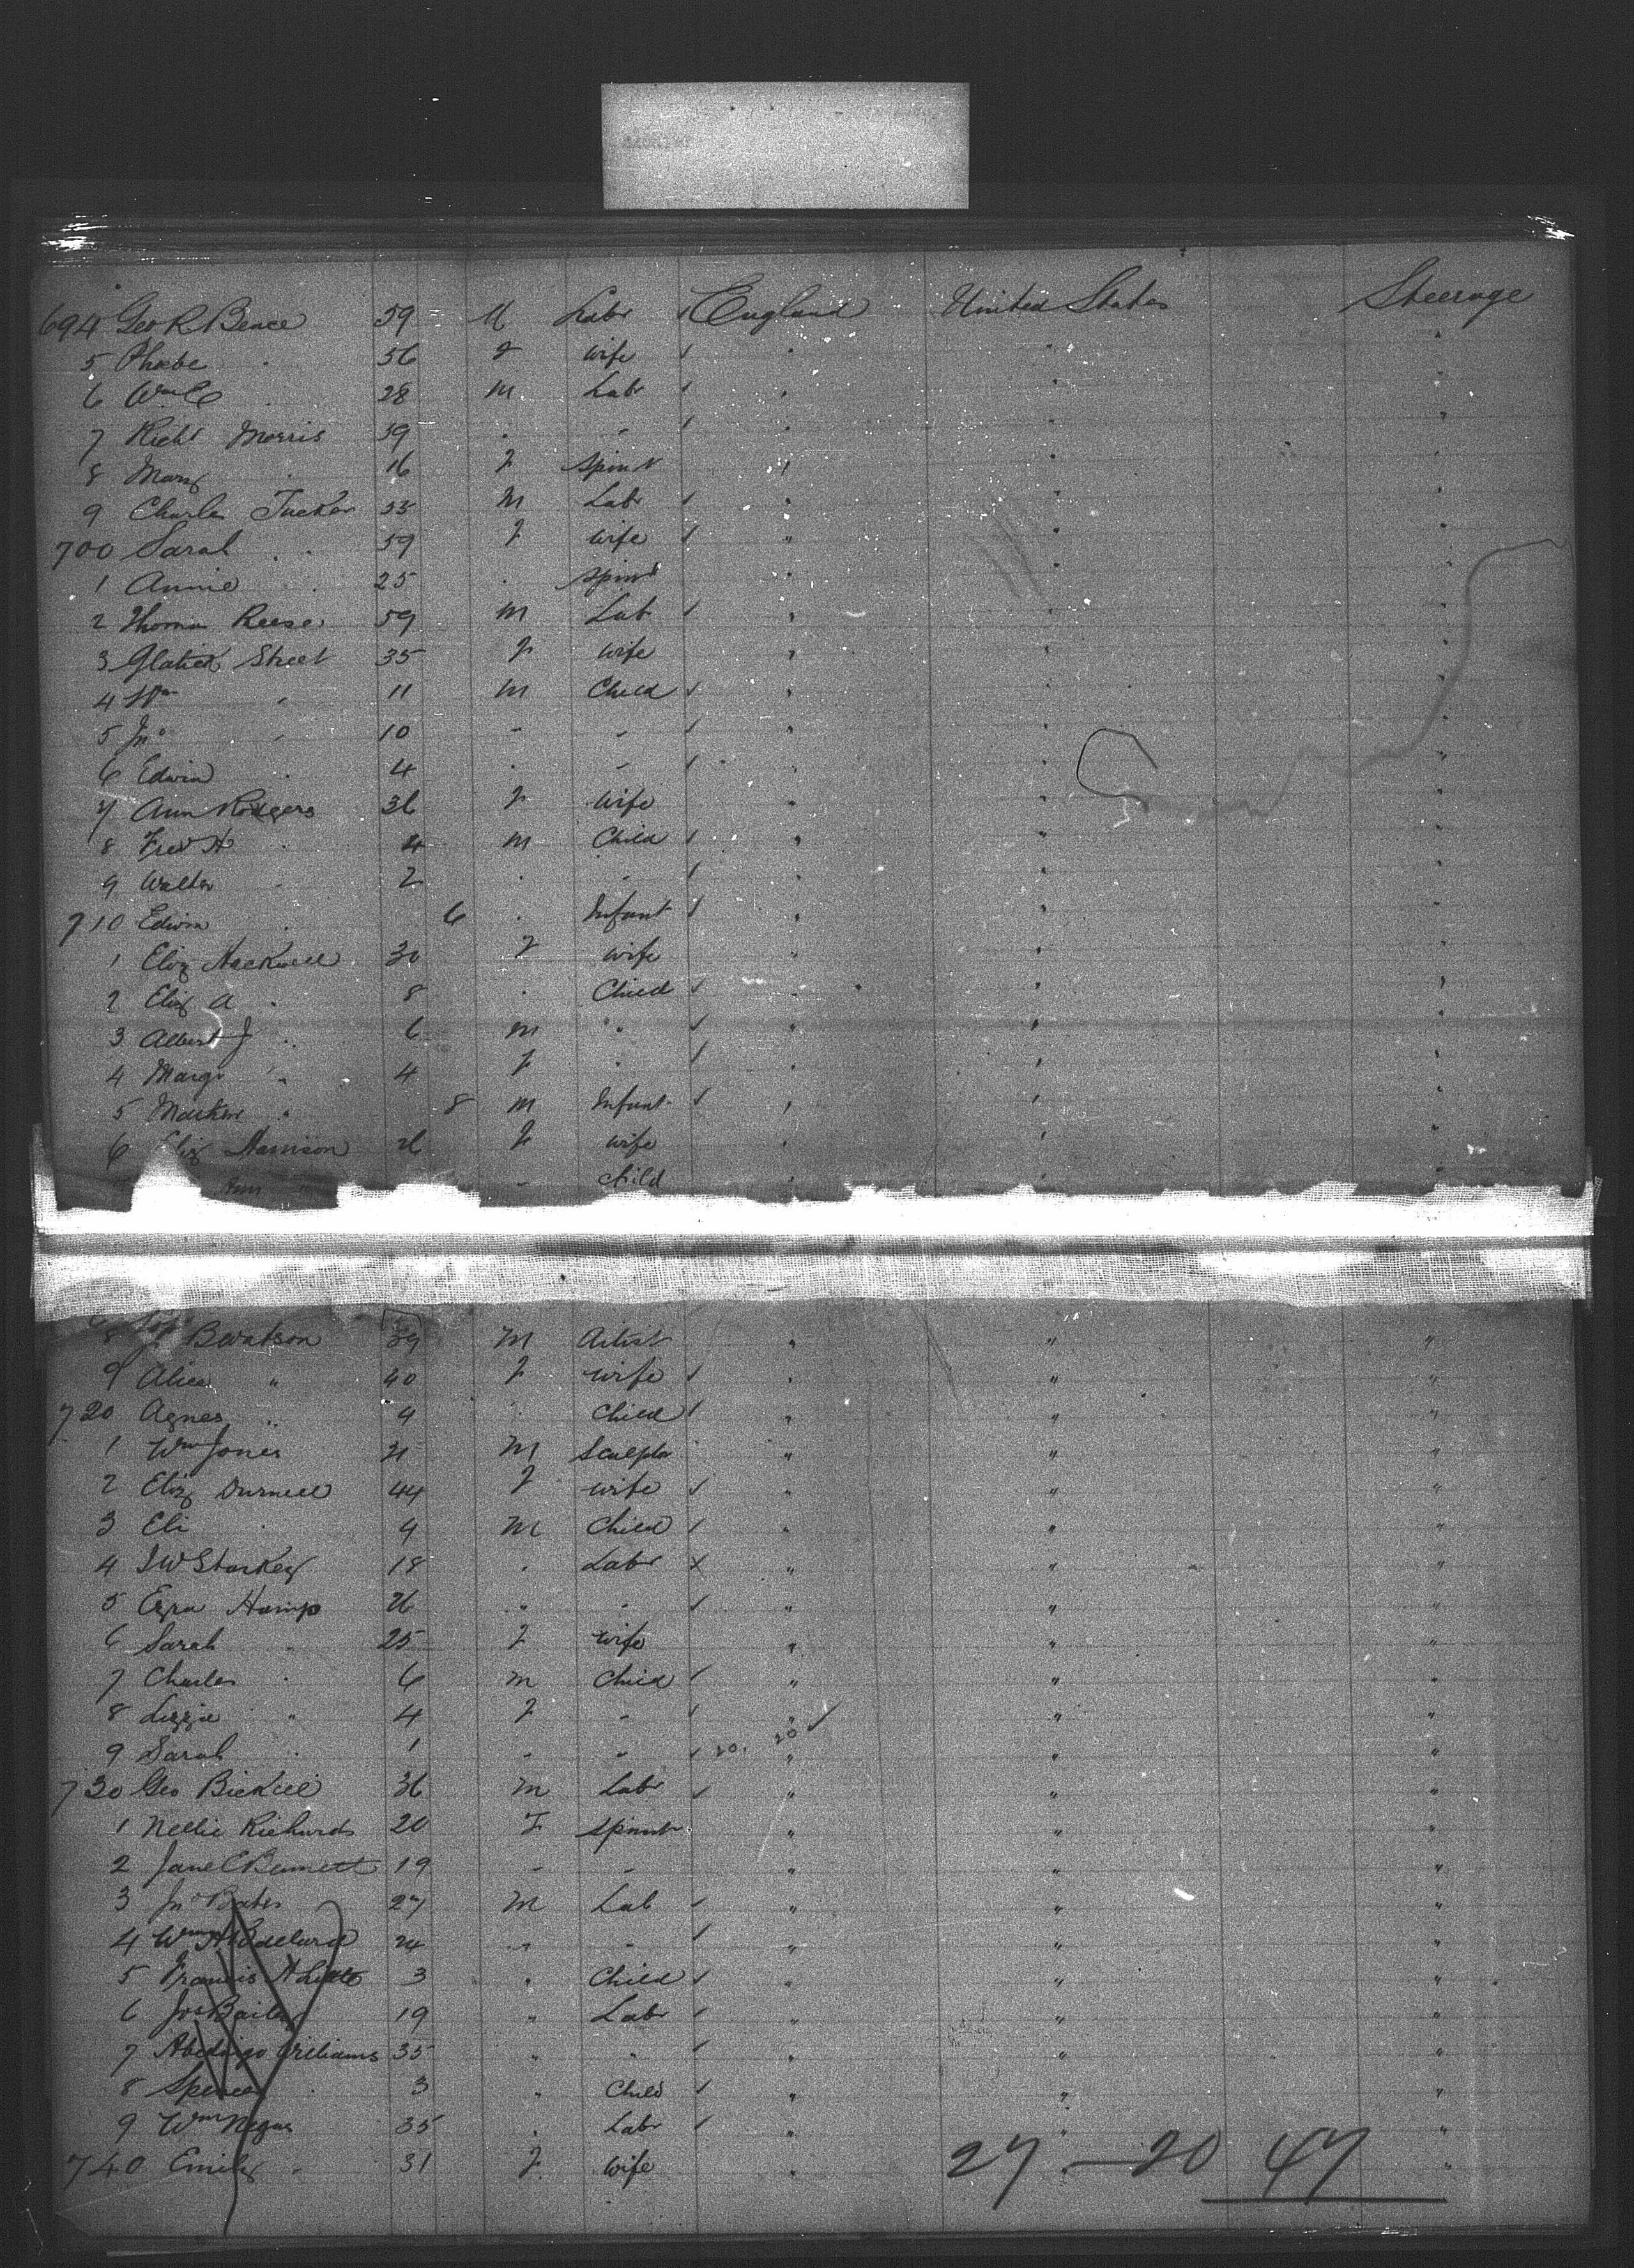 694 Geo R Beace 59 M Labr England United States Steerage
5 Phoebe " 56 F wife " " "
6 Wm C " 28 M Labr " " "
7 Richd Morris 39 " " " " "
8 Mary " 16 F Spinst " " "
9 Charles Tucker M Labr " " "
700 Sarah " 59 F wife " " "
1 Annie " 25 " Spinst " " "
2 Thomas Reese 59 M Lab " " "
3 Street 35 F wife " " "
4 Wm " 11 M Child " " "
5 Jno " 10 " " " " "
6 Edwin " 4 " " " " "
7 Ann Rodgers 36 F wife " " "
8 Fred H " 4 M Child " " "
9 Walter " 2 " " " " "
710 Edwin " 6 " Infant " " "
1 Eliz 30 F wife " " "
2 Eliz A " 8 " Child " " "
3 Albert J " 6 M " " " "
4 Margt " 4 F " " " "
5 " 8 M Infant " " "
6 Eliz Harrison 26 F wife " " "
Ann " " child " " "
8 B Watson 39 M Artist " " "
9 Alice " 40 F wife " " "
720 Agnes " 9 " Child " " "
1 Wm Jones M Sculptor " " "
2 Eliz Durnell 44 F wife " " "
3 Eli " 9 M Child " " "
4 J W Starkey 18 " Labr x " " "
5 Ezra Hamp 26 " " " " "
6 Sarah " 25 F wife " " "
7 Charles " 6 M Child " " "
8 Lizzie " 4 F " " " "
9 Sarah " 1 " " 20. 20 " " "
730 Geo Bickell 36 M Labr " " "
1 Nellie Richards 20 F Spinst " " "
2 Jane C Bennett 19 " " " " "
3 Jno Bates 27 M Lab " " "
4 Wm 24 " " " " "
5 Francis A 3 " Child " " "
6 Jos Bailey 19 " Labr " " "
7 Abednigo Williams 35 " " " " "
8 Spencer " 3 " Child " " "
9 Wm Negus 35 " Labr " " "
740 Emily " 31 F wife " " "
27 - 20 47